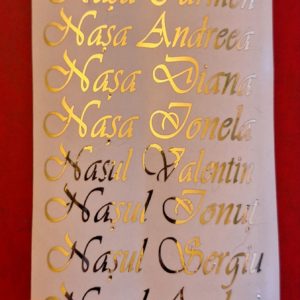 Nașa Carmen
Nașa Andreea
Nașa Diana
Nașa Ionela
Nașul Valentin
Nașul Ionuț
Nașul Sergiu